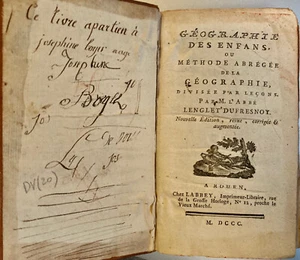 Ce livre apartien à
josephine
DV(20)
GÉOGRAPHIE
DES ENFANS,
OU
MÉTHODE ABRÉGÉE
DE LA
GÉOGRAPHIE,
DIVISÉE PAR LEÇONS.
PAR M. L'ABBÉ
LENGLET DUFRESNOY.
Nouvelle Édition, revue, corrigée &
augmentée.
A ROUEN,
Chez LABBEY, Imprimeur-Libraire, rue
de la Grosse Horloge, N° 12, proche le
Vieux Marché.
M. DCCC.